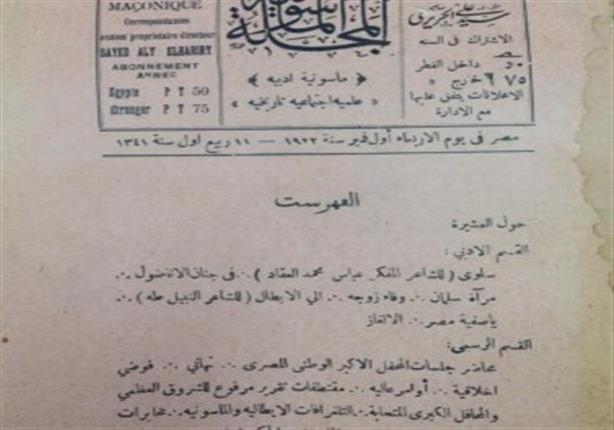 MAÇONIQUE
Correspondances
SAYED ALY ELHARIRY
ABONNEMENT
ANNEE
Egypte P T 50
Etranger P T 75
المجلة الماسونية
﴿ ماسونية ادبيه ﴾
« علميه اجتماعيه تاريخيه »
سيد علي الحريرى
الاشتراك فى السنه
٥٠ داخل القطر
٧٥ خارج «
الاعلانات يتفق عليها
مع الادارة
مصر فى يوم الاربعاء أول نوفمبر سنة ١٩٢٢ — ١١ ربيع اول سنة ١٣٤١
الفهرست
حول العشيرة
القسم الادبي :
سلوى ( للشاعر المفكر عباس محمد العقاد ) ∴ فى جنان الاناضول ∴
مرآة سليمان ∴ وفاء زوجه ∴ الي الابطال ( للشاعر النبيل طه ) ∴
ياصفية مصر ∴ الالغاز
القسم الرسمى :
محاضر جلسات المحفل الاكبر الوطنى المصرى ∴ تهانى ∴ فوضي
اخلاقية ∴ أوامر عاليه ∴ مقتطفات تقرير مرفوع للشروق العظمي
والمحافل الكبرى المتحابة ∴ التلغرافات الايطاليه والماسونيه ∴ مخابرات